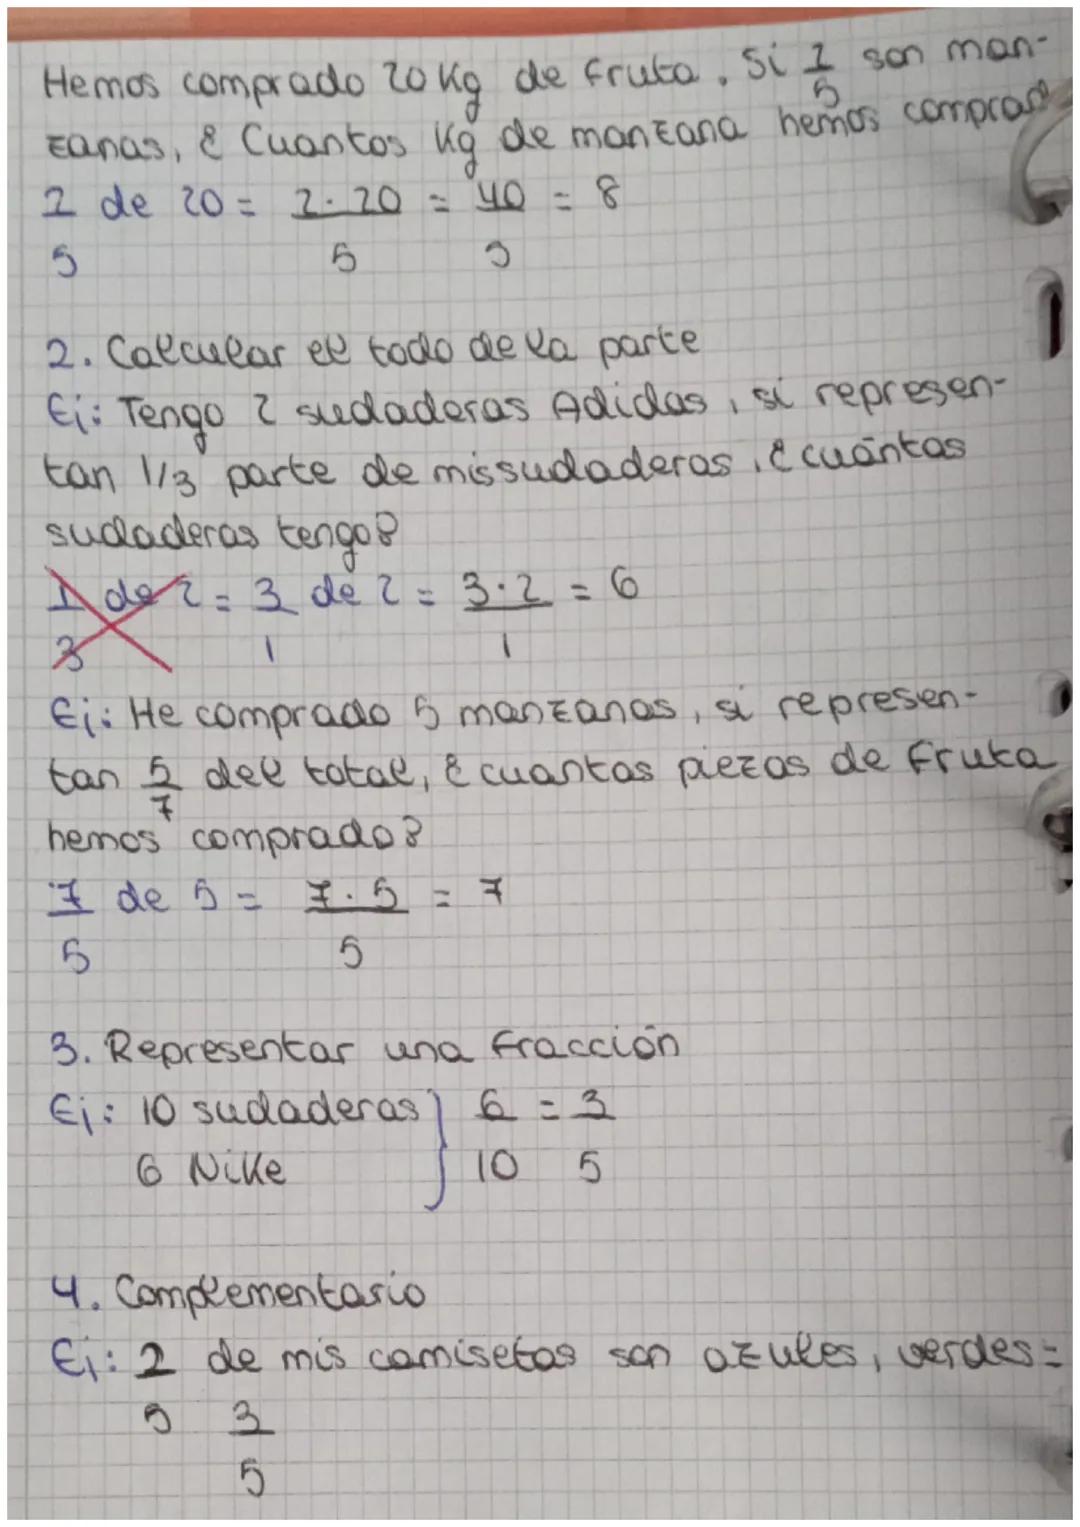 Hemos comprado 20 Kg de fruta. Si 2/5 son man-
zanas, ¿ Cuantos Kg de manzana hemos comprad
2/5 de 20 = 2·20/5 = 40/5 = 8
2. Calcular el todo de la parte
Ej: Tengo 2 sudaderas Adidas, si represen-
tan 1/3 parte de mis sudaderas, ¿ cuántas
sudaderas tengo?
1/3 de 2 = 3/1 de 2 = 3·2/1 = 6
Ej: He comprado 5 manzanas, si represen-
tan 5/7 del total, ¿ cuantas piezas de fruta
hemos comprado?
7/5 de 5 = 7·5/5 = 7
3. Representar una fracción
Ej: 10 sudaderas } 6/10 = 3/5
6 Nike
4. Complementario
Ej: 2/5 de mis camisetas son azules, verdes =
3/5